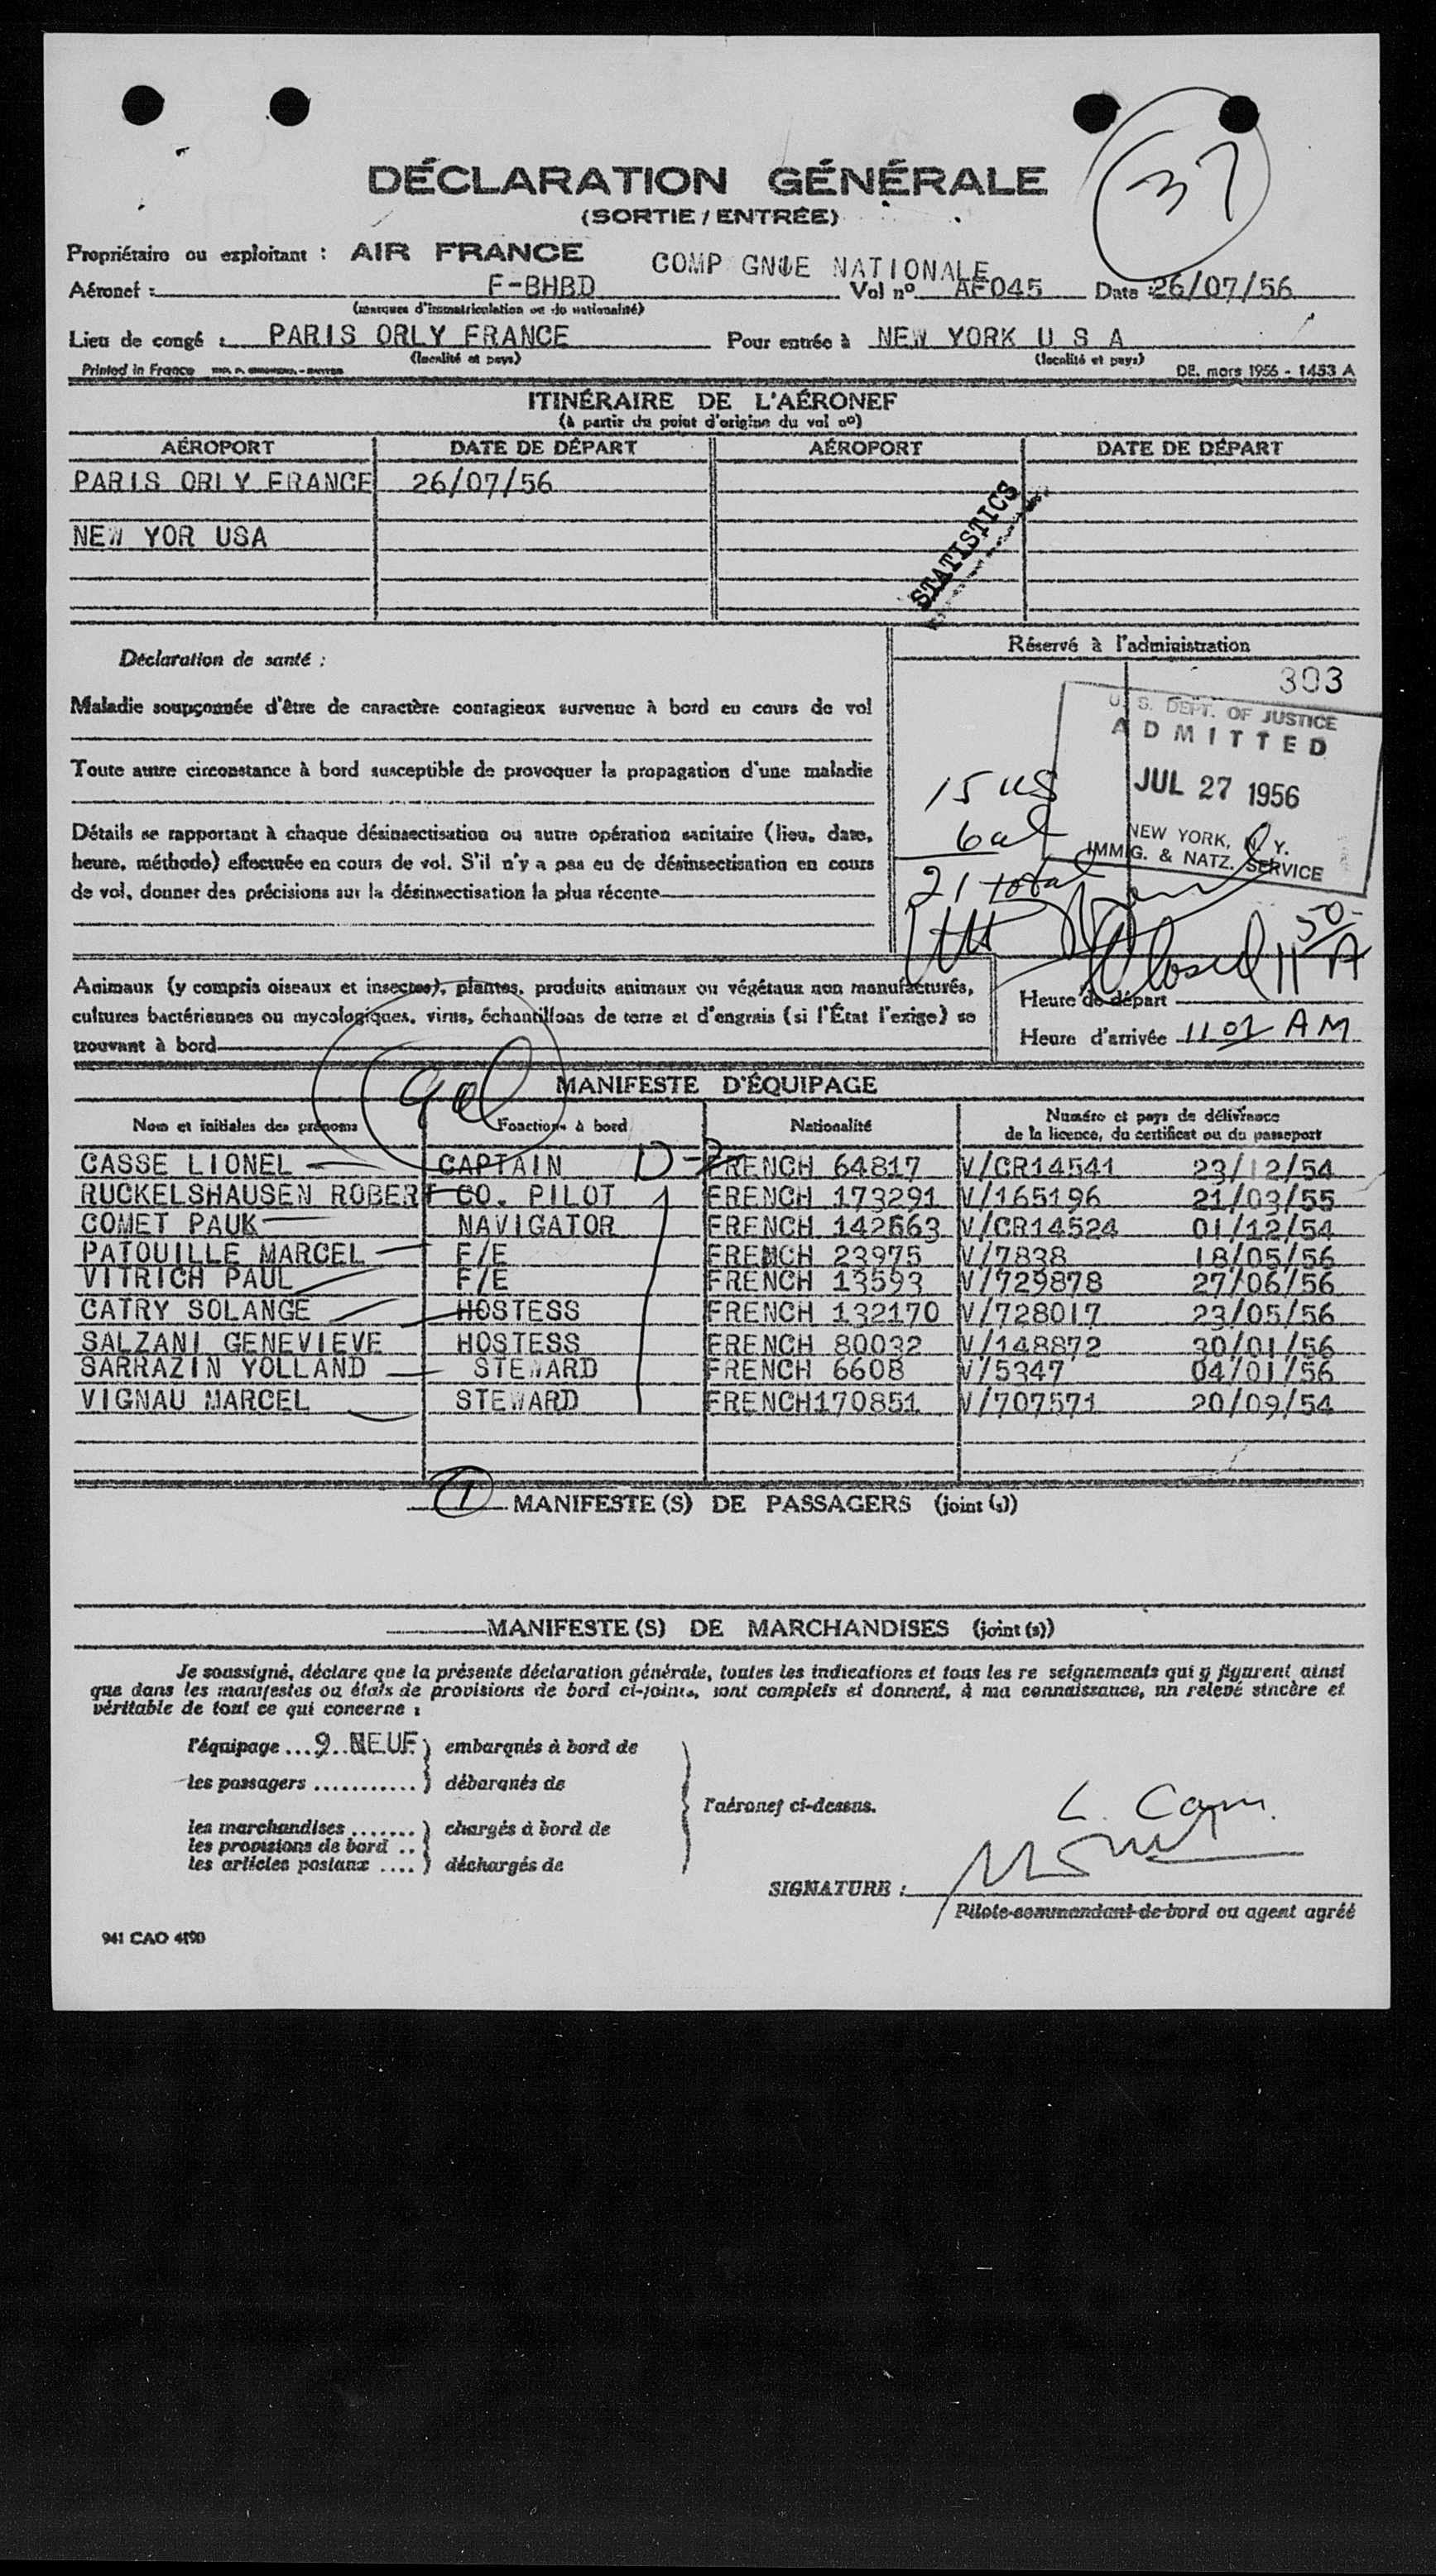 37
DÉCLARATION GÉNÉRALE
(SORTIE / ENTRÉE)
Propriétaire ou exploitant : AIR FRANCE COMP GNIE NATIONALE
Aéronef : F-BHBD Vol nº AF045 Date : 26/07/56
(marques d'immatriculation ou de nationalité)
Lieu de congé : PARIS ORLY FRANCE Pour entrée à NEW YORK U S A
(localité et pays) (localité et pays)
Printed in France DE. mars 1956 - 1453 A
ITINÉRAIRE DE L'AÉRONEF
(à partir du point d'origine du vol nº)
AÉROPORT DATE DE DÉPART AÉROPORT DATE DE DÉPART
PARIS ORLY FRANCE 26/07/56
NEW YOR USA
STATISTICS
Déclaration de santé :
Réservé à l'administration
303
Maladie soupçonnée d'être de caractère contagieux survenue à bord en cours de vol
Toute autre circonstance à bord susceptible de provoquer la propagation d'une maladie
Détails se rapportant à chaque désinsectisation ou autre opération sanitaire (lieu, date,
heure, méthode) effectuée en cours de vol. S'il n'y a pas eu de désinsectisation en cours
de vol, donner des précisions sur la désinsectisation la plus récente
U. S. DEPT. OF JUSTICE
ADMITTED
JUL 27 1956
NEW YORK, N. Y.
IMMIG. & NATZ. SERVICE
15 US
6 al
21 total
Closed 11 50 A
Animaux (y compris oiseaux et insectes), plantes, produits animaux ou végétaux non manufacturés,
cultures bactériennes ou mycologiques, virus, échantillons de terre et d'engrais (si l'État l'exige) se
trouvant à bord
Heure de départ
Heure d'arrivée 11 01 AM
9 al
MANIFESTE D'ÉQUIPAGE
Nom et initiales des prénoms Fonctions à bord Nationalité Numéro et pays de délivrance
de la licence, du certificat ou du passeport
CASSE LIONEL CAPTAIN D-2 FRENCH 64817 V/CR14541 23/12/54
RUCKELSHAUSEN ROBERT CO. PILOT FRENCH 173291 V/165196 21/03/55
COMET PAUK NAVIGATOR FRENCH 142663 V/CR14524 01/12/54
PATOUILLE MARCEL F/E FRENCH 23975 V/7838 18/05/56
VITRICH PAUL F/E FRENCH 13593 V/729878 27/06/56
CATRY SOLANGE HOSTESS FRENCH 132170 V/728017 23/05/56
SALZANI GENEVIEVE HOSTESS FRENCH 80032 V/148872 30/01/56
SARRAZIN YOLLAND STEWARD FRENCH 6608 V/5347 04/01/56
VIGNAU MARCEL STEWARD FRENCH170851 V/707571 20/09/54
1 MANIFESTE (S) DE PASSAGERS (joint (s))
MANIFESTE (S) DE MARCHANDISES (joint (s))
Je soussigné, déclare que la présente déclaration générale, toutes les indications et tous les re seignements qui y figurent ainsi
que dans les manifestes ou états de provisions de bord ci-joints, sont complets et donnent, à ma connaissance, un relevé sincère et
véritable de tout ce qui concerne :
l'équipage ... 9 .. NEUF ) embarqués à bord de
les passagers ........... ) débarqués de
l'aéronef ci-dessus.
les marchandises ....... ) chargés à bord de
les provisions de bord ..
les articles postaux .... ) déchargés de
SIGNATURE :
Pilote-commandant de bord ou agent agréé
941 CAO 4190